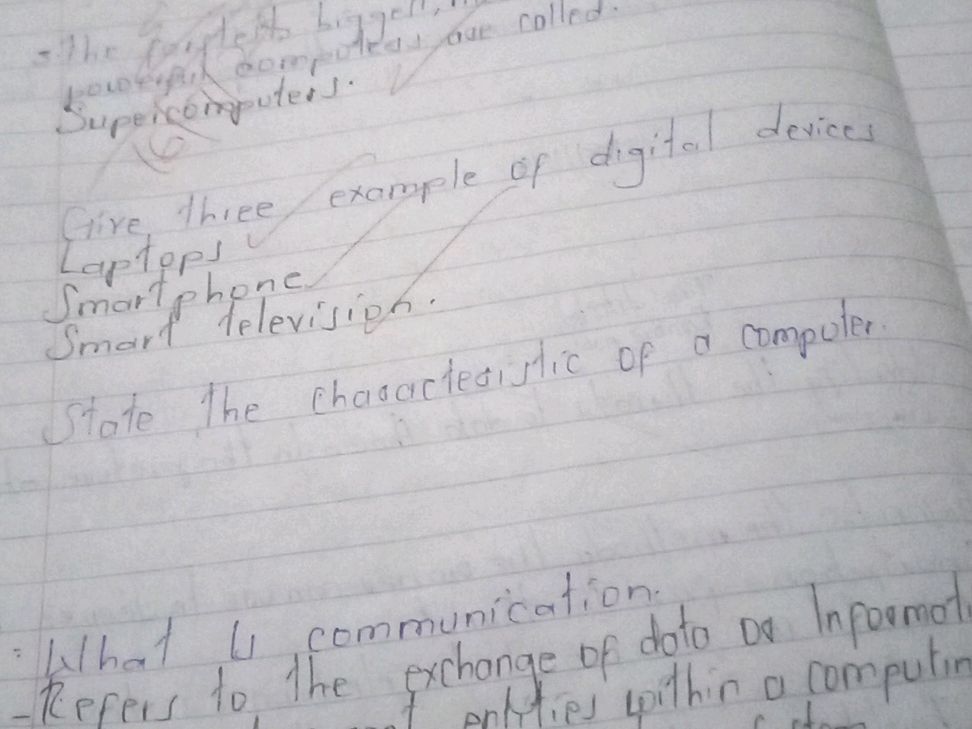 The fastest, biggest,
powerful computers are called.
Supercomputers.
Give three example of digital devices
Laptops
Smartphone
Smart television.
State the characteristic of a computer.
What is communication.
- Refers to the exchange of data or Informati
entities within a computin